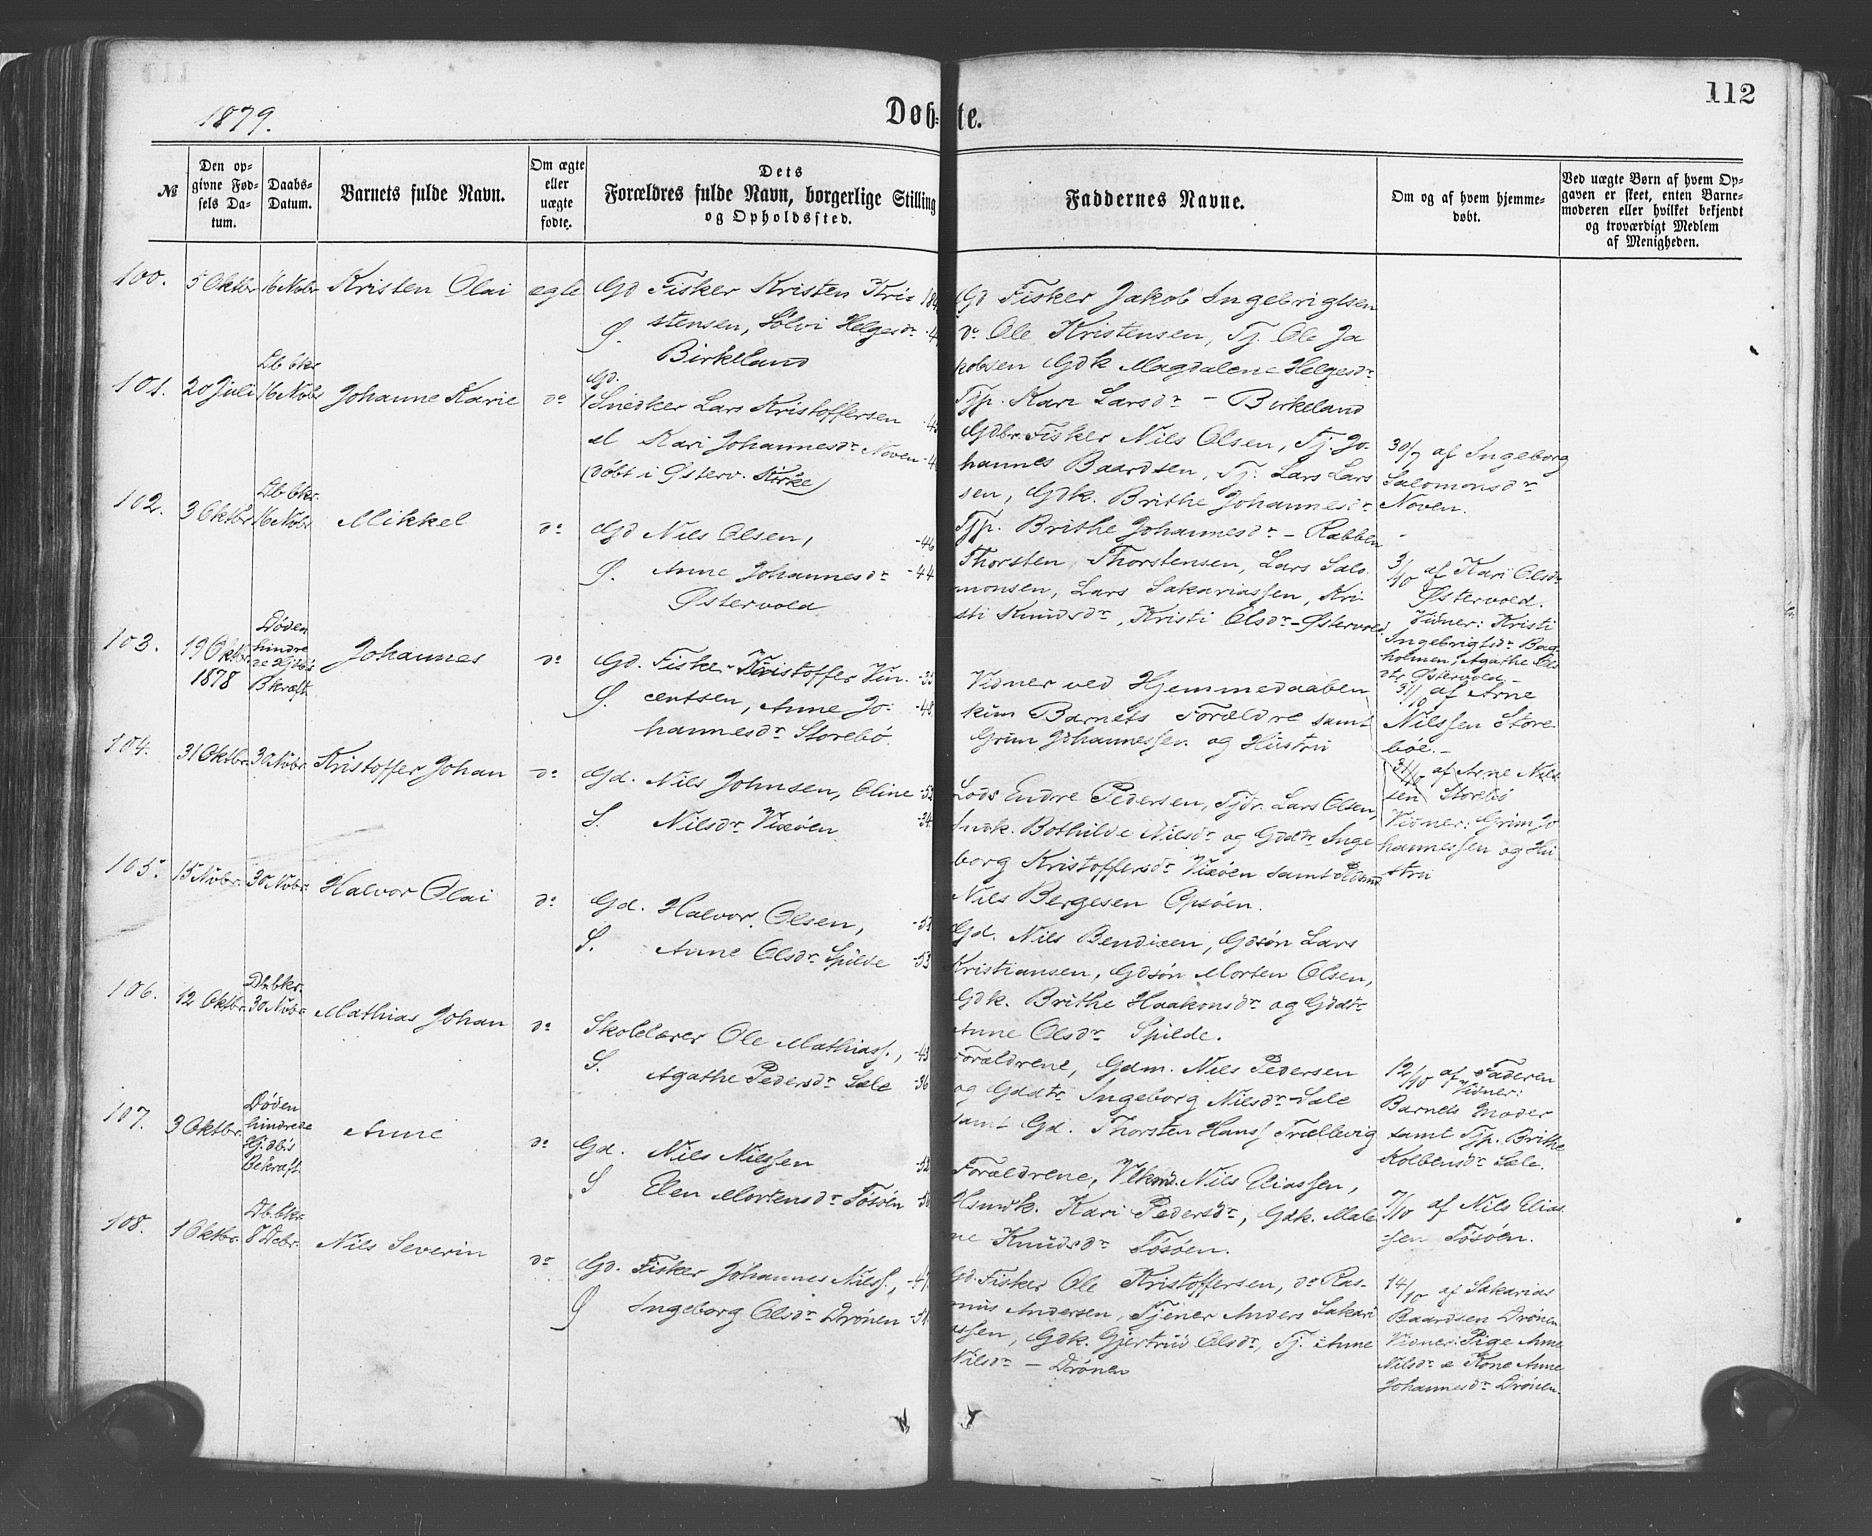 112
1879.
Døb-te.
№
Den op-
givne Fød-
sels Da-
tum.
Daabs-
Datum.
Barnets fulde Navn.
Om ægte
eller
uægte
fødte.
Dets
Forældres fulde Navn, borgerlige Stilling
og Opholdssted.
Faddernes Navne.
Om og af hvem hjemme-
døbt.
Ved uægte Børn af hvem Op-
gaven er skeet, enten Barne-
moderen eller hvilket bekjendt
og troværdigt Medlem
af Menigheden.
100. 5 Oktbr 16 Novbr Kristen Olai egte Gd Fisker Kristen Kri-
Ø. stensen, Sølvi Helgesdr
Birkeland
Gd Fisker Jakob Ingebrigtsen
do Ole Kristensen, Tj. Ole Ja
kobsen Gdk Magdalene Helgesdr
Tjp. Kari Larsdr - Birkeland
101. 20 Juli Db bkr 16 Novbr Johanne Karie do Gd.
(Snedker Lars Kristoffersen
Kari Johannesdr Noven
(døbt i Østerv. Kirke)
Gdbr. Fisker Nils Olsen, Tj. Jo-
hannes Baardsen, Tj. Lars Lars
sen, Gdk. Brithe Johannesdr
Tjp. Brithe Johannesdr - Rabben
30/7 af Ingeborg
Salomonsdr
Noven.
102. 3 Oktbr Db bkr. 16 Novbr Mikkel do Gd Nils Olsen, -46
Ø. Anne Johannesdr -44
Østervold
Thorsten Thorstensen, Lars Salo-
monsen, Lars Sakariassen, Kri-
sti Knudsdr, Kristi Olsdr - Østervold
3/10 af Kari Olsdr
Østervold.
Vidner: Kristi
Ingebrigtsdr Bag-
holmen, Agathe Ols-
dtr Østervold -
103. 19 Oktbr 1878 Døden
hindre
de Hjdbs
Bkræft. Johannes do Gd. Fisker Kristoffer Vin- -35
Ø. centsen, Anne Jo- -48
hannesdr Storebø.
Vidner ved Hjemmedaaben
kun Barnets Forældre samt
Grim Johannessen og Hustru
31/10 af Arne
Nilssen Store-
bøe. -
104. 31 Oktbr. 30 Novbr. Kristoffer Johan do Gd. Nils Johnsen, Oline -52
S. Nilsdr Vixøen -34
Lods Endre Pedersen, Tjdr. Lars Olsen,
Indk. Bothilde Nilsdr og Gddtr Inge
borg Kristoffersdr Vixøen samt
Nils Bergesen Opsøen.
31/10 af Arne Nils-
sen Storebø
Vidner: Grim Jo
hannessen og Hu-
stru
105. 15 Novbr. 30 Novbr. Halvor Olai do Gd. Halvor Olsen,
S. Anne Olsdr Spilde -53
Gd. Nils Bendixen, Gdsøn Lars
Kristiansen, Gdsøn Morten Olsen,
Gdk. Brithe Haakonsdr og Gddtr
Anne Olsdr Spilde.
106. 12 Oktbr. Db bkr. 30 Novbr Mathias Johan do Skolelærer Ole Mathiass., -43
S. Agathe Pedersdr Sæle -36
Forældrene, Gdm. Nils Pedersen
og Gddtr Ingeborg Nilsdr - Sæle
samt Gd. Thorsten Hanss Trællevig
12/10 af Faderen
Vidner:
Barnets Moder
samt Tjp. Brithe
Kolbensdr Sæle.
107. 3 Oktbr. Døden
hindrede
Hjdbs
Bekræft. Anne do Gd. Nils Nilssen -52
S Elen Mortensdr Tøsøen
Forældrene, Nils Eliassen,
Hsmdk. Kari Pedersdr, Gdk. Male
ne Knudsdr Tøsøen.
7/10 af Nils Elias-
sen Tøsøen.
108. 1 Oktbr. Db. bkr. 8 Debr. Nils Severin do Gd. Fisker Johannes Nilss.,
Ø Ingeborg Olsdr Drønen
Gd. Fisker Ole Kristoffersen, do Ras-
mus Andersen, Tjener Anders Sakari
assen, Gdk. Gjertrud Olsdr, Tj. Anne
Nilsdr - Drønen
14/10 af Sakarias
Baardsen Drønen
Vidner: Pige Anne
Nilsdr & Kone Anne
Johannesdr Drønen.